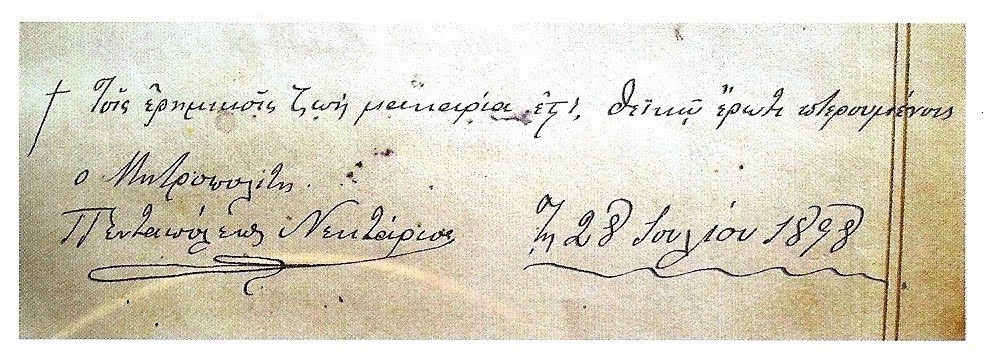 † Τοῖς ἐρημικοῖς ζωὴ μακαρία ἐστί, θεϊκῷ ἔρωτι πτερουμένοις
ο Μητροπολίτης
Πενταπόλεως Νεκτάριος
Τῇ 28 Ιουλίου 1898